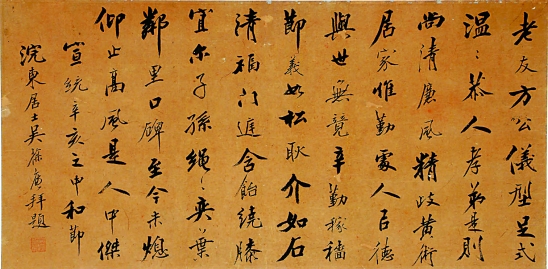 老友方公儀型足式
溫々恭人孝弟是則
尚清廉風精岐黃術
居家惟勤處人以德
與世無競辛勤稼穡
節義如松耿介如石
清福門運含飴繞膝
宜尔子孫繩々奕葉
鄰里口碑至今未熄
仰止高風是人中傑
宣統辛亥之中和節
浣東居士吳孫廣拜題